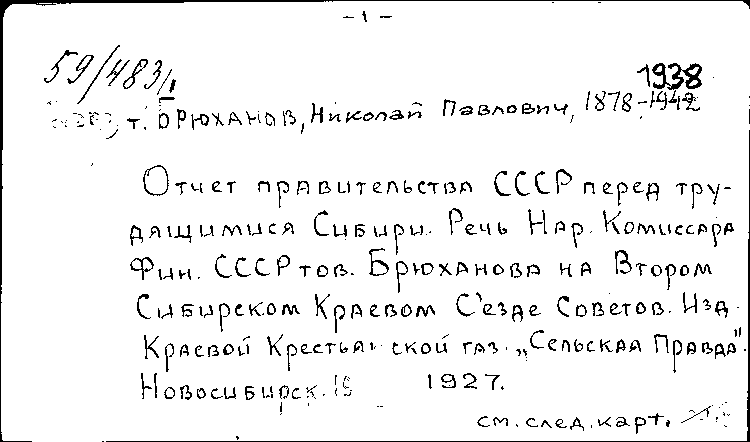 - 1 -
59/483
1938
т. Брюханов, Николай Павлович, 1878-1942
Отчет правительства СССР перед тру-
дящимися Сибири. Речь Нар. Комиссара
Фин. СССР тов. Брюханова на Втором
Сибирском Краевом С'езде Советов. Изд.
Краевой Крестьянской газ. „Сельская Правда".
Новосибирск. 1927.
см. след. карт.